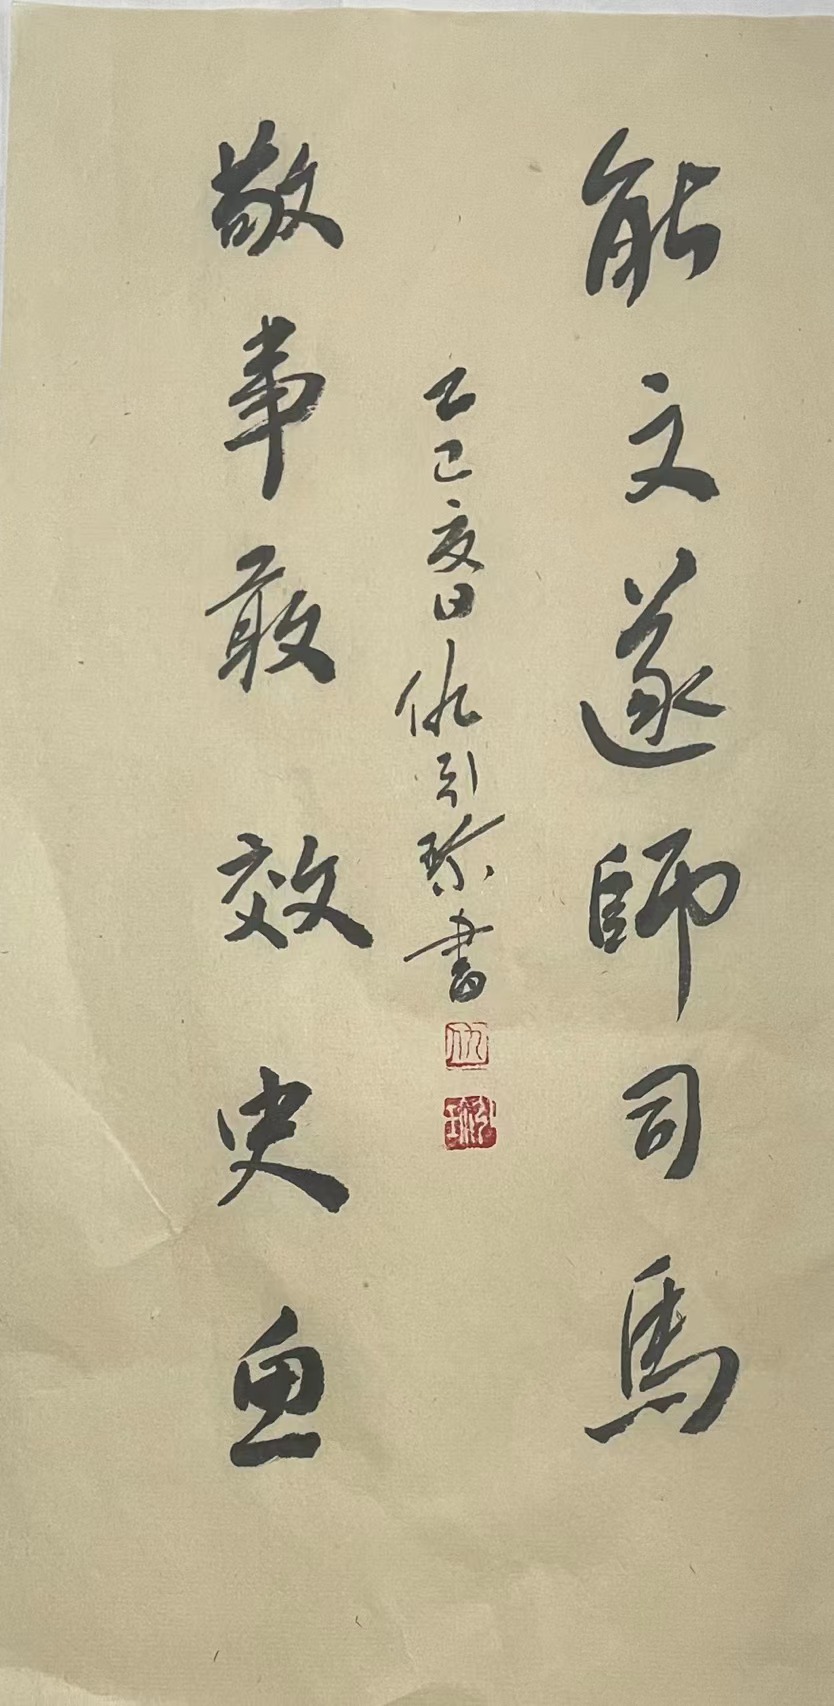 能文遂師司馬
敬事敢效史魚
乙巳亥日仇引珍書